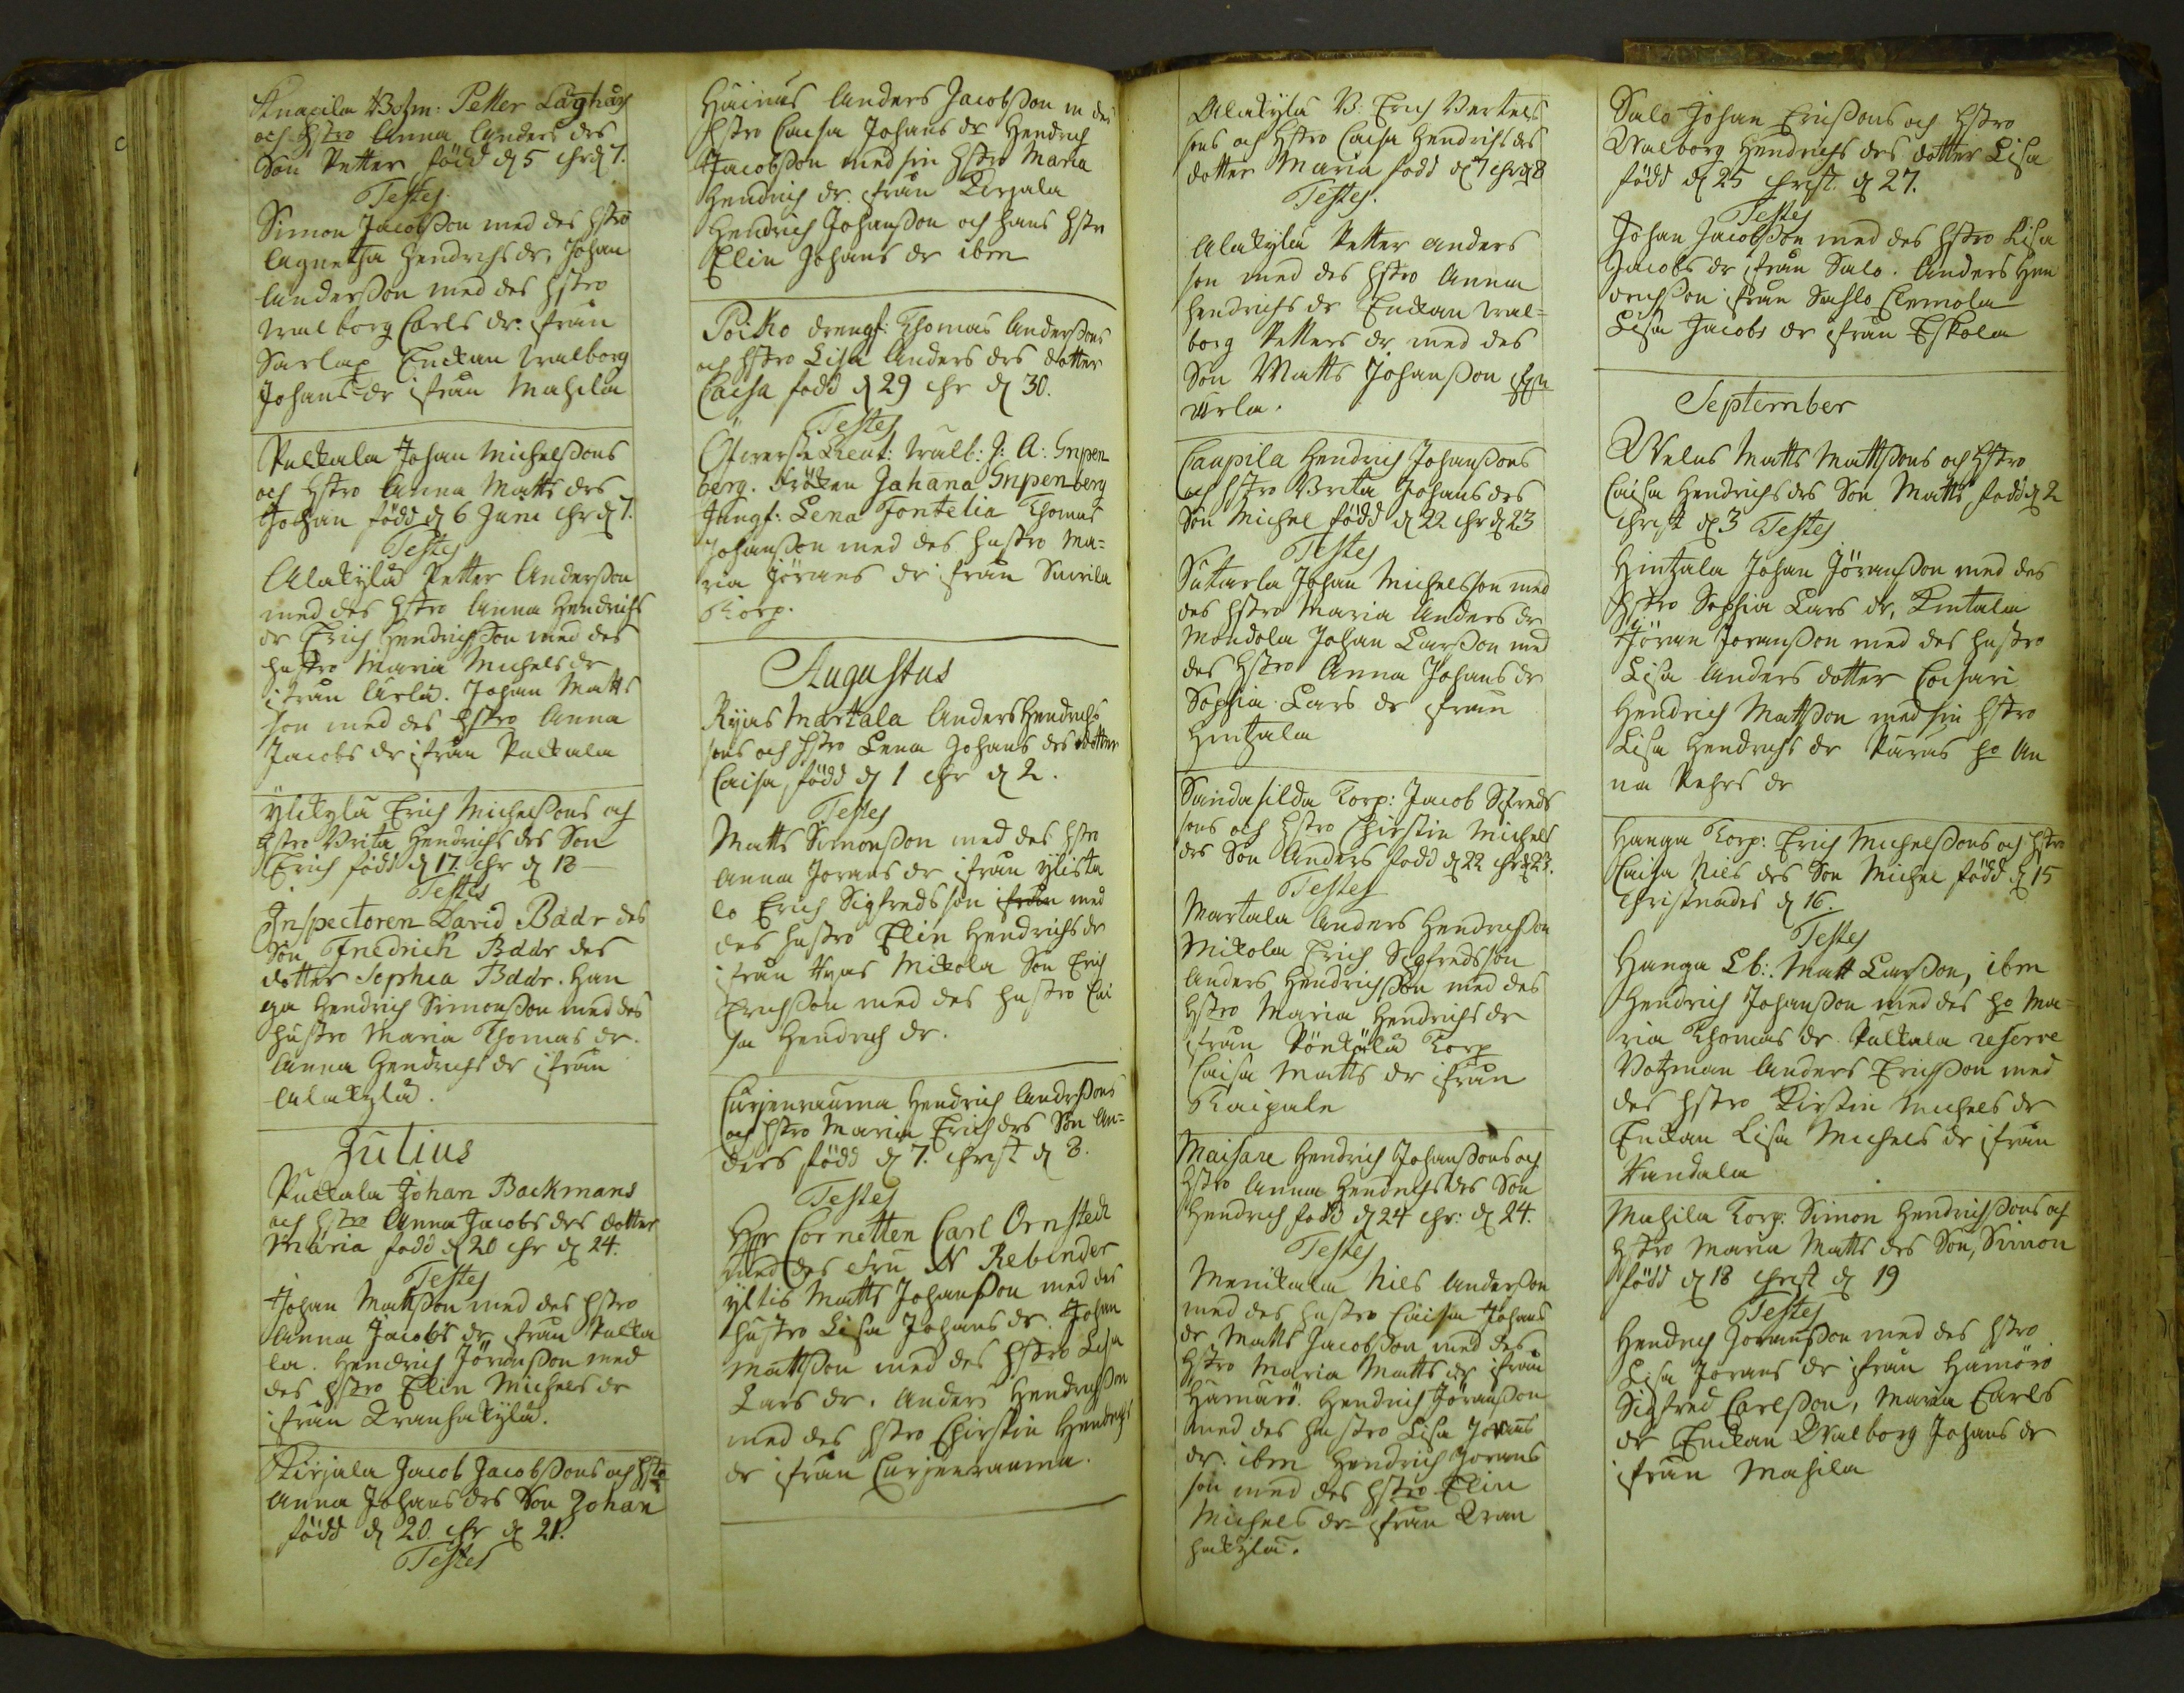 Knapila Botzm: Petter Laghuus
och Hstro Anna Anders drs
Son Petter född d 5 chr d 7.
Testes
Simon Jacobsson med des Hstro
Agnetha Hendrichs dr, Johan
Andersson med des Hstro
Walborg Carls dr: från
Enckan Walborg
Johans dr ifrån Mahila
Pulkala Johan Michelssons
och Hstro Anna Matts drs
Johan född d 6 Juni chr d 7.
Testes
Alakylä Petter Andersson
med des Hstro Anna Hendrichs
dr Erich Hendrichsson med des
hustro Maria Michels dr
ifrån Urla. Johan Matts
son med des Hstro Anna
Jacobs dr ifrån Pulkala
Ylikylä Erich Michelssons och
Hstro Brita Hendrichs drs Son
Erich född d 17 chr d 18
Testes
Inspectoren David Baddr des
Son Friedrich Baddr des
dotter Sophia Baddr. Han
ga Hendrich Simonsson med des
hustro Maria Thomas dr.
Anna Hendrichs dr ifrån
Alakylä.
Julius
Pulkala Johan Backmans
och Hstro Anna Jacobs drs dotter
Maria född d 20 chr d 24.
Testes
Johan Mattsson med des Hstro
Anna Jacobs dr från Pulka
la. Hendrich Jöransson med
des Hstro Elin Michels dr
ifrån Kranhakylä.
Kirjala Jacob Jacobssons och Hstro
Anna Johans drs Son Johan
född d 20 chr d 21.
Testes
Anders Jacobsson m des
Hstro Caisa Johans dr Hendrich
Jacobsson med sin Hstro Maria
Hendrich dr. från Kirjala
Hendrich Johansson och hans Hstr
Elin Johans dr ibm
Poiko drengf: Thomas Anderssons
och Hstro Lisa Anders drs dotter
Caisa född d 29 chr d 30.
Testes
Öfwerste Lieut: Walb: J: A: Gripen
berg. Fröken Johana Gripenberg
Jungf: Lena Fontelia Thomas
Johansson med des hustro Ma=
ria Jörans dr från
Torp.
Augustus
Kyas Martala Anders Hendrichs
sons och Hstro Lena Johans drs dotter
Caisa, född d 1 chr d 2.
Testes
Matts Simonsson med des Hstr
Anna Jorans dr ifrån Ylista
lo Erich Sigfredsson ifrån med
des hustro Elin Hendrichs dr
ifrån Kyas Mikola Son Erich
Erichsson med des hustro Cai
sa Hendrich dr.
Curjenrauma Hendrich Andrssons
och Hstro Maria Erichs drs Son An=
ders född d 7. christ d 8.
Testes
Herr Cornetten Carl Ornstedt
med des Fru N Rebinder
Yltis Matts Johansson med des
hustro Lisa Johans dr. Johan
Mattsson med des Hstro Lisa
Lars dr. Anders Hendrichsson
med des Hstro Chirstin Hendrichs
dr ifrån Curjenrauma.
Alakylä B: Erich Bertels
sons och Hstro Caisa Hendrichs drs
dotter Maria född d 7 chr d 8
Testes.
Alakylä Petter Anders
son med des Hstro Anna
Hendrichs dr Enckan Wal=
borg Petters dr med des
Son Matts Johansson från
Urla.
Caupila Hendrich Johanssons
och Hstro Brita Johans drs
Son Michel född d 22 chr d 23
Testes
Sutarla Johan Michelsson med
des Hstro Maria Anders dr
Mondola Johan Larsson med
des Hstro Anna Johans dr
Sophia Lars dr från
Hintzala
Sandasilda Torp: Jacob Sifreds
sons och Hstro Chirstin Michels
drs Son Anders född d 22 chr d 23.
Testes
Martala Anders Hendrichsson
Mikola Erich Sigfredsson
Anders Hendrichsson med des
Hstro Maria Hendrichs dr
från Pönkölä Torp
Caisa Matts dr ifrån
Kaipale
Maisare Hendrich Johanssons och
Hstro Anna Hendrichs drs Son
Hendrich född d 24 chr: d 24.
Testes
Menikala Nils Andersson
med des hustro Caisa Johans
dr Matts Jacobsson med des
Hstro Maria Matts dr ifrån
Hamarö. Hendrich Jöransson
med des hustro Lisa Jorans
dr. ibm Hendrich Jorans
son med des Hstro Elin
Michels dr från Kran
hakylä.
Salo Johan Erichssons och Hstro
Walborg Hendrichs drs dotter Lisa
född d 25 christ d 27.
Testes
Johan Jacobsson med des Hstro Lisa
Jacobs dr ifrån Salo. Anders Hen
drichsson ifrån Sahlo Clemola
Lisa Jacobs dr ifrån Eskola
September
Welas Matts Mattssons och Hstro
Caisa Hendrichs drs Son Matts född d 2
christ d 3 Testes
Hintzala Johan Jöransson med des
Hstro Sophia Lars dr, Kintala
Jöran Joransson med des hustro
Lisa Anders dotter Caisari
Hendrich Mattsson med sin Hstro
Lisa Hendrichs dr Puras ho An
na Pehrs dr
Hanga Torp: Erich Michelssons och Hstro
Caisa Nils drs Son Michel född d 15
christnades d 16.
Testes
Hanga Lb: Matt Larsson, ibm
Hendrich Johansson med des ho Ma=
ria Thomas dr Pulkala reserve
Botzman Anders Erichsson med
des Hstro Kirstin Michels dr
Enckan Lisa Michels dr ifrån
Kandala
Mahila Torp: Simon Hendrichssons och
Hstro Maria Matts drs Son, Simon
född d 18 christ d 19
Testes
Hendrich Joransson med des Hstro
Lisa Jorans dr ifrån Hamörö
Sigfred Carlsson, Maria Carls
dr Enckan Walborg Johans dr
ifrån Mahila